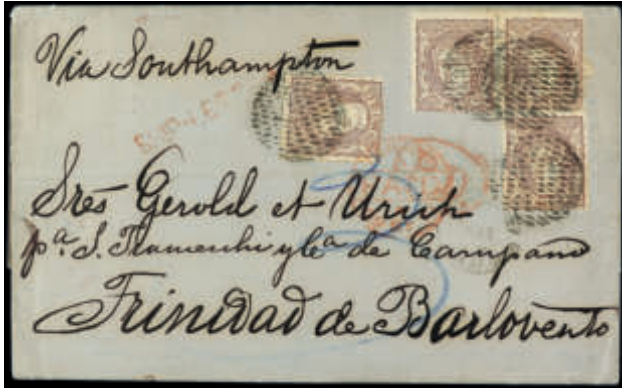 Via Southampton
Sres Gerold et Urich
pa. J. y Ca de Carupano
Trinidad de Barlovento